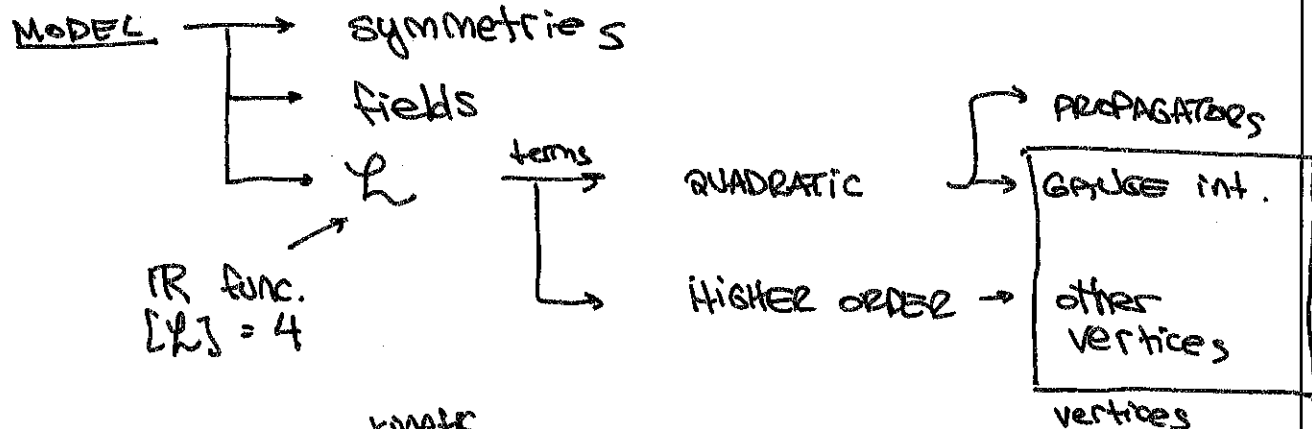 MODEL → symmetries
fields
ℒ terms QUADRATIC → PROPAGATORS
GAUGE int.
ℝ func.
[ℒ] = 4
HIGHER ORDER → other
vertices
vertices